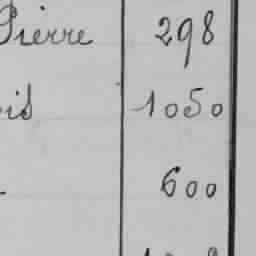 Pierre 298
1050
600